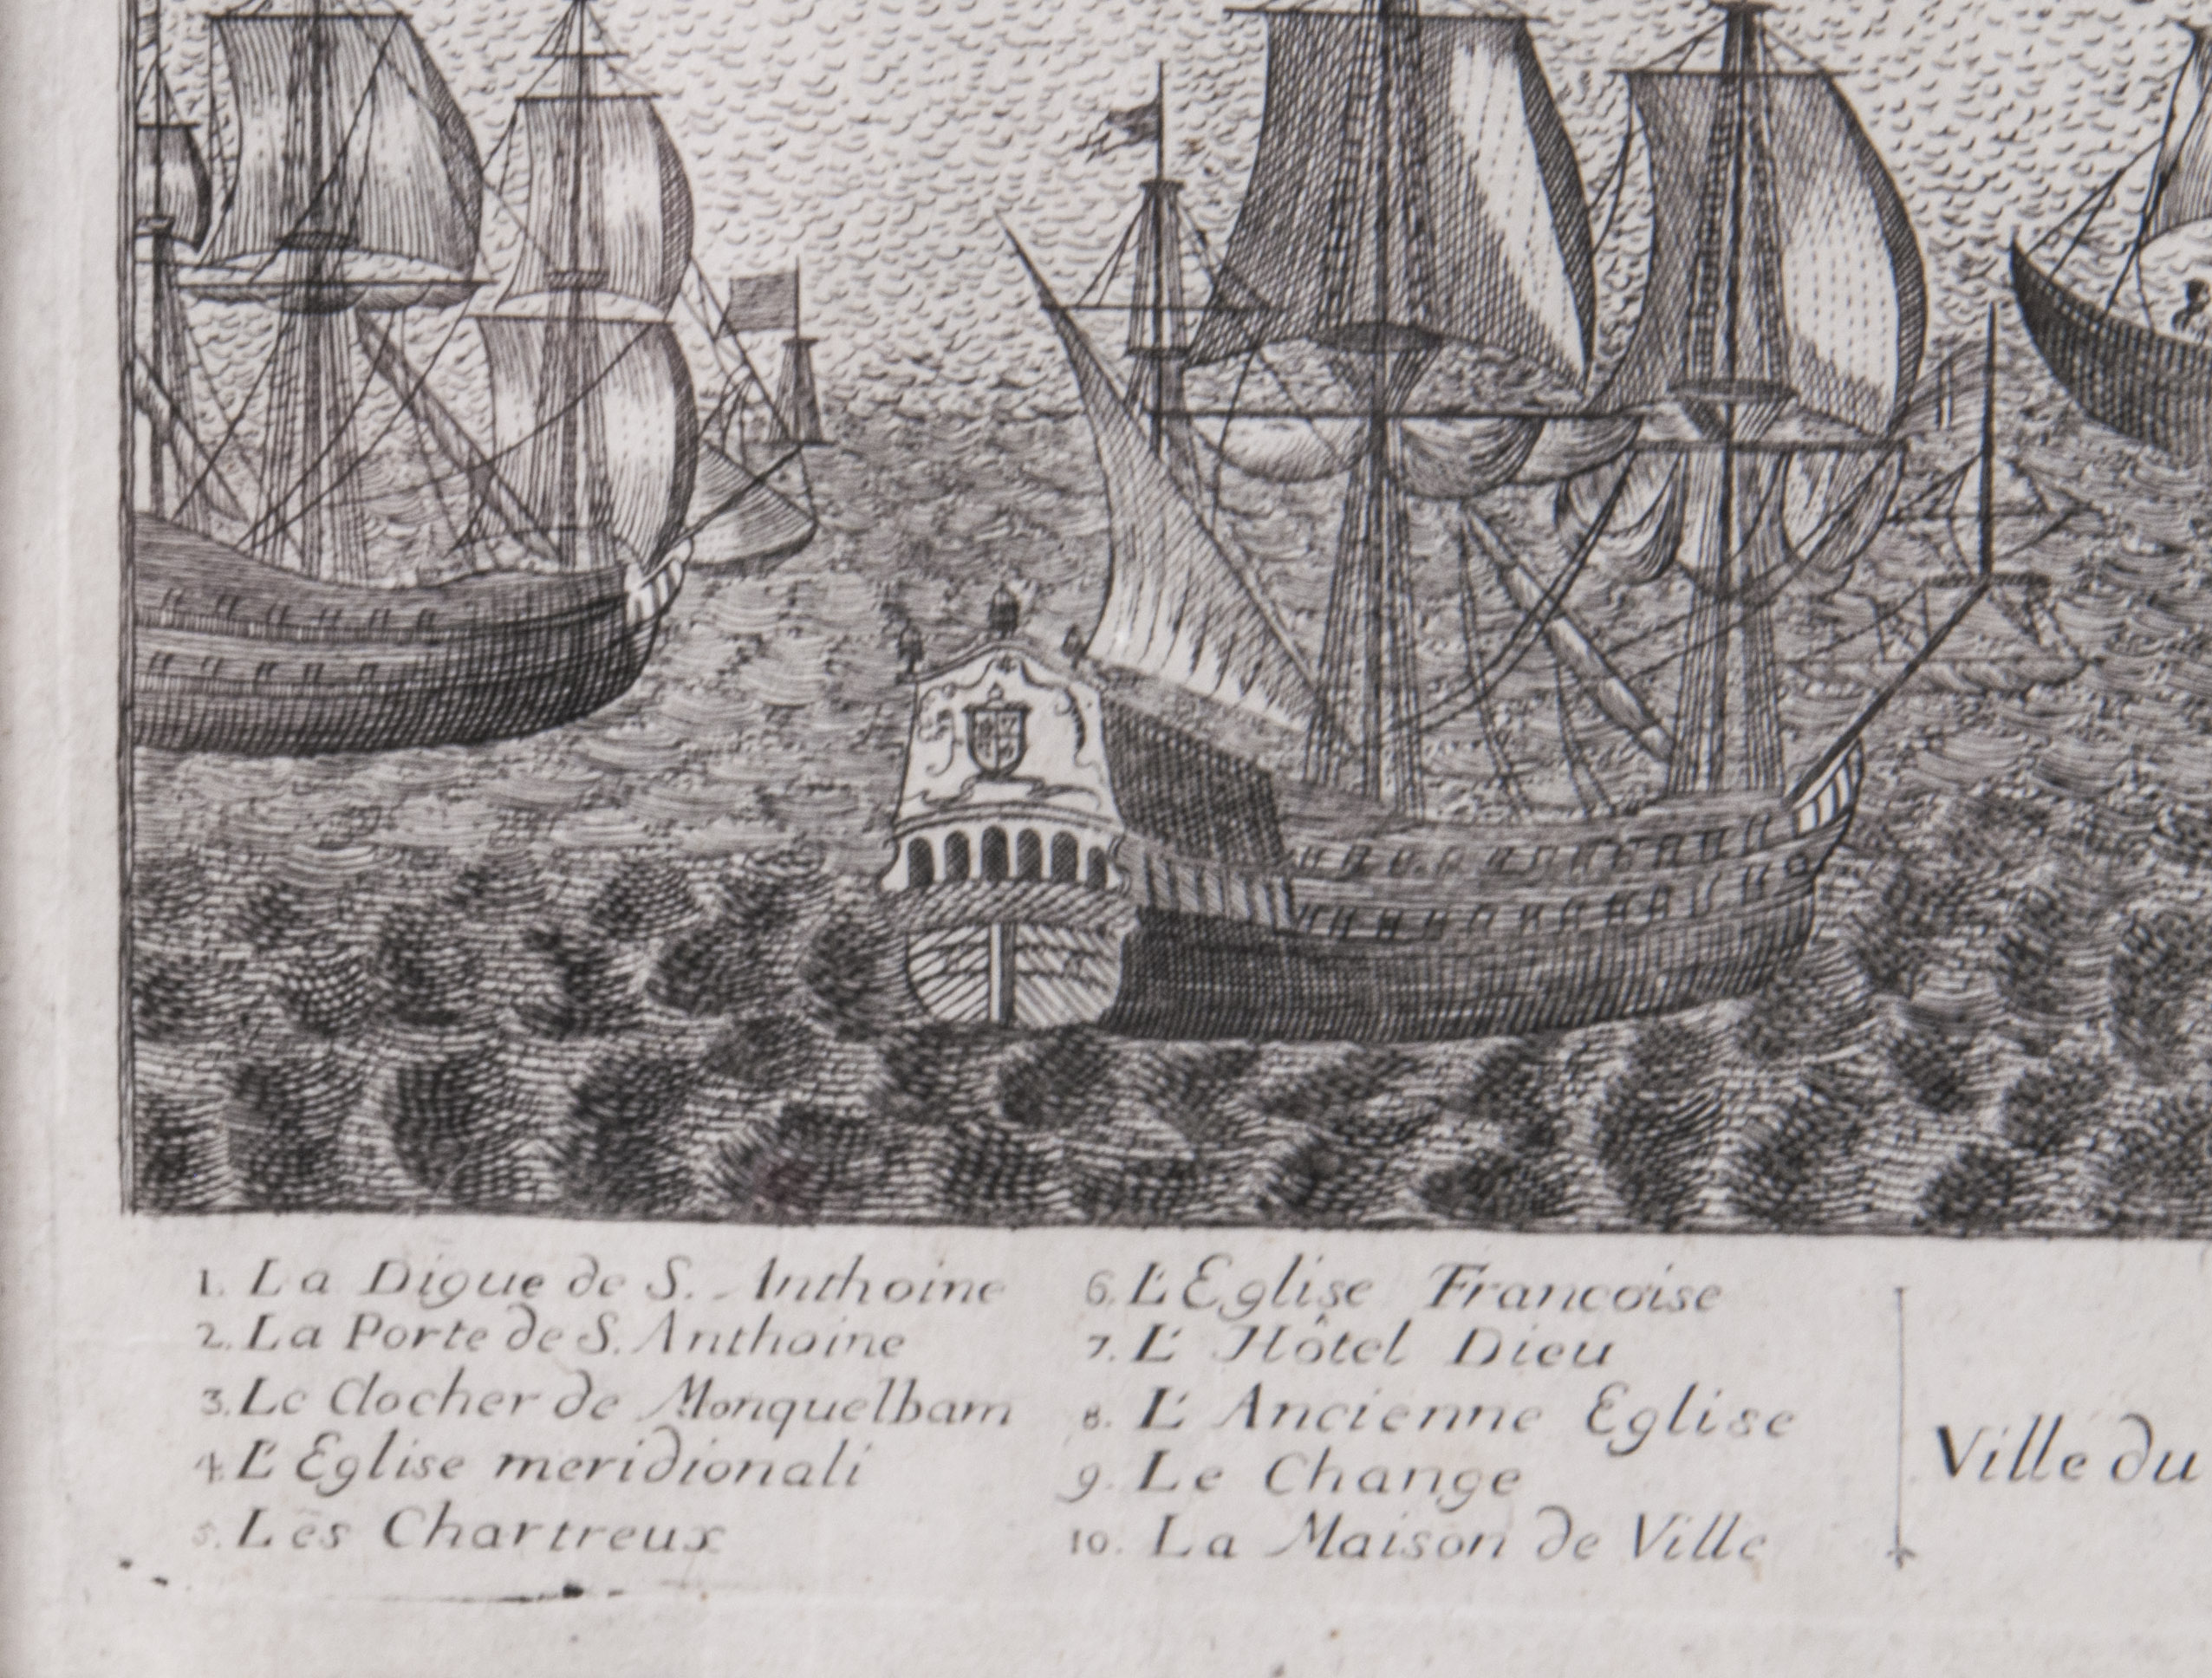 1. La Digue de S. Anthoine
2. La Porte de S. Anthoine
3. Le Clocher de Monquelbam
4. L'Eglise meridionali
5. Les Chartreux
6. L'Eglise Francoise
7. L' Hôtel Dieu
8. L' Ancienne Eglise
9. Le Change
10. La Maison de Ville
Ville du